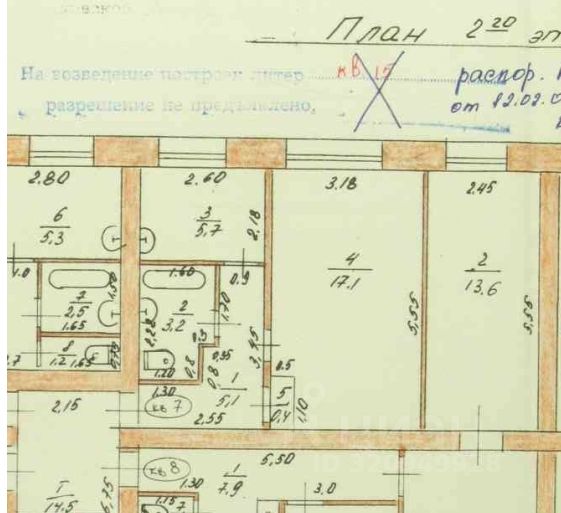 План 2го эт
На возведение построек литер
разрешение не предъявлено,
кв 15
распор.
от 12.02.
2.80 2.60 3.18 2.45
6
5,3
3
5,7
2.18
4
17.1
2
13.6
1.0
7
2,5
1.50
1.65
1.60
0.9
2
3,2
1.70
2.28
5,55
5,55
8
1.2
1.65
0.8
0,95
3,45
1.20
0.8
0.5
1.30
1
5,1
5
0,4
1.10
2,15
кв 7
2.55
5,50
кв 8
1.30
1
7,9
3,0
I
14.5
6,75
1.15
7